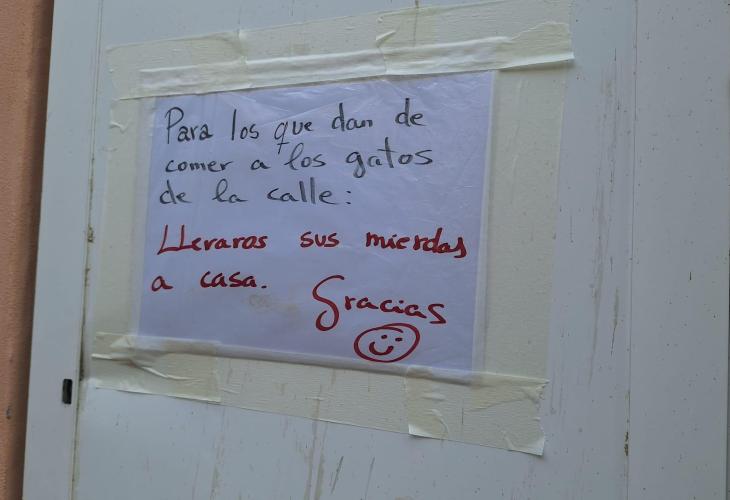 Para los que dan de
comer a los gatos
de la calle:
Llevaros sus mierdas
a casa.
Gracias